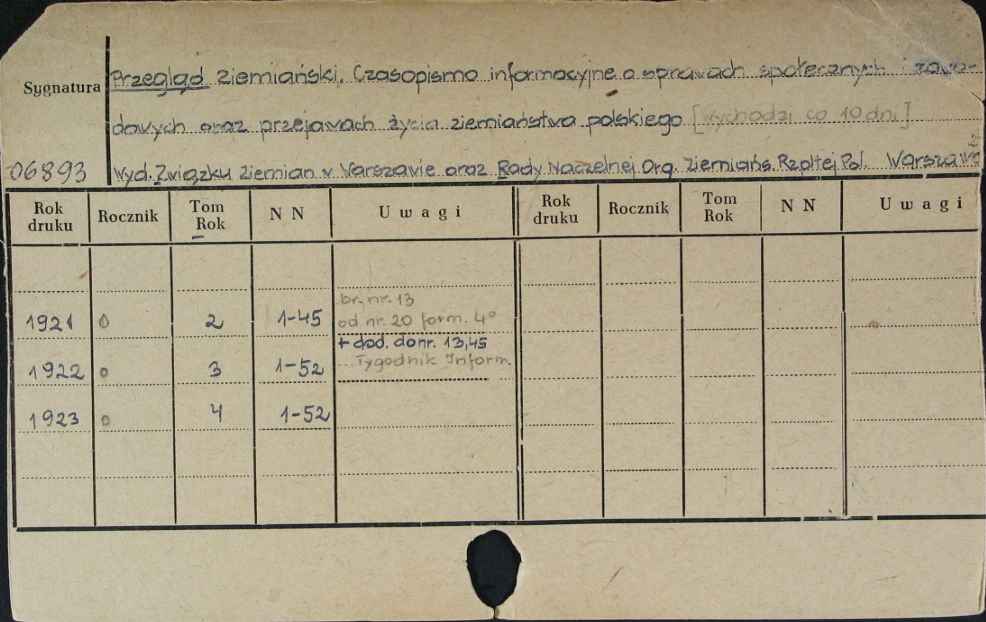 Sygnatura
Przegląd Ziemiański. Czasopismo informacyjne o sprawach społecznych i zawo-
dowych oraz przejawach życia ziemiaństwa polskiego [wychodzi co 10 dni]
06893 Wyd. Związku Ziemian w Warszawie oraz Rady Naczelnej Org. Ziemiańs. Rzpltej Pol. Warszawa
Rok druku Rocznik Tom Rok NN Uwagi Rok druku Rocznik Tom Rok NN Uwagi
br. nr. 13
1921 0 2 1-45 od nr. 20 form. 4°
+ dod. do nr. 13,45
1922 0 3 1-52 ...Tygodnik Inform.
1923 0 4 1-52